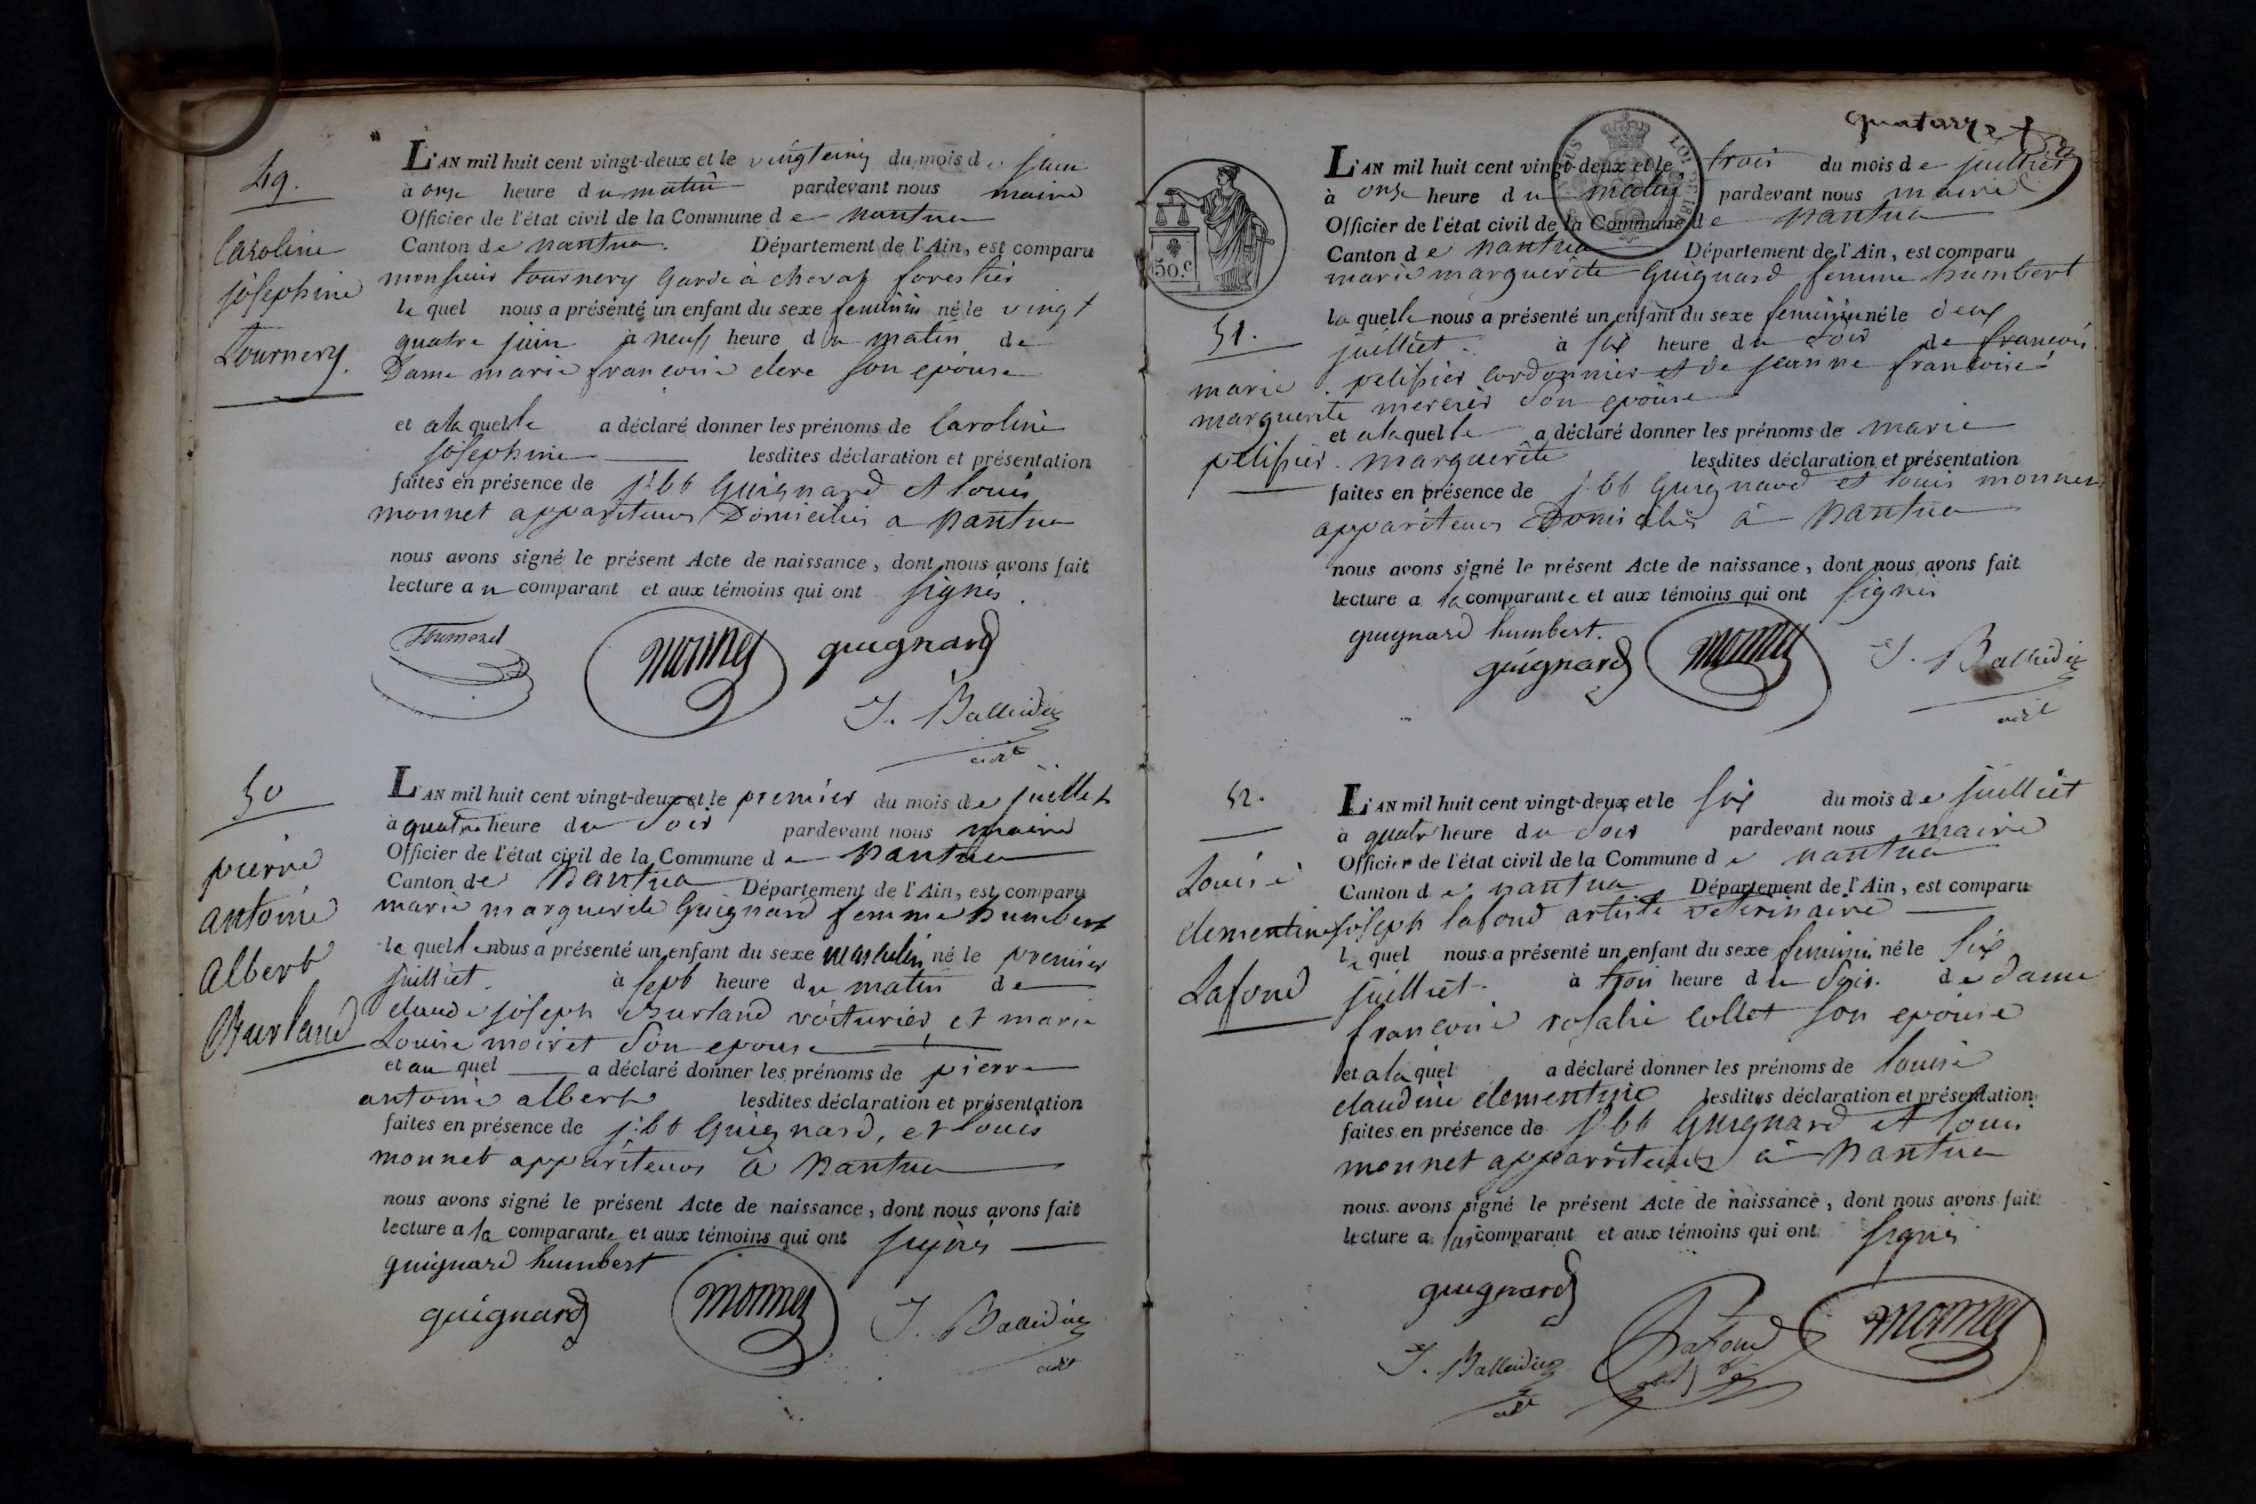 49.
Caroline
josephine
Tournery.
L'AN mil huit cent vingt-deux et le vingtcinq du mois de juin
à onze heure du matin pardevant nous maire
Officier de l'état civil de la Commune de nantua
Canton de nantua. Département de l'Ain, est comparu
monsieur tournery Garde à cheval forestier
le quel nous a présenté un enfant du sexe feminin né le vingt
quatre juin à neuf heure du matin de
Dame marie francoise clere son epouse
et a la quelle a déclaré donner les prénoms de Caroline
josephine lesdites déclaration et présentation
faites en présence de j. bt Guignard et louis
monnet appariteurs Domiciliés a nantua
nous avons signé le présent Acte de naissance, dont nous avons fait
lecture au comparant et aux témoins qui ont signés.
monnet guignard
J. Balleidier
adt
50
pierre
antoine
albert
Burland
L'AN mil huit cent vingt-deux et le premier du mois de juillet
à quatre heure du soir pardevant nous maire
Officier de l'état civil de la Commune de nantua
Canton de nantua Département de l'Ain, est comparu
marie marguerite Guignard femme humbert
la quelle nous a présenté un enfant du sexe masculin né le premier
juilliet. à sept heure du matin de
claude joseph Burland voiturier et marie
Louise moiret son epouse
et au quel a déclaré donner les prénoms de pierre
antoine albert lesdites déclaration et présentation
faites en présence de j. bt Guignard, et louis
monnet appariteurs à nantua
nous avons signé le présent Acte de naissance, dont nous avons fait
lecture a la comparante et aux témoins qui ont signés
guignard humbert
guignard monnet J. Balleidier
adt
quatorze
50.c
51.
marie
marguerite
pelissier.
L'AN mil huit cent vingt-deux et le trois du mois de juilliet
à onze heure du matin pardevant nous maire
Officier de l'état civil de la Commune de nantua
Canton de nantua Département de l'Ain, est comparu
marie marguerite Guignard femme humbert
la quelle nous a présenté un enfant du sexe feminin né le deux
juilliet. à six heure du soir de francois
pelissier cordonnier et de jeanne francoise
mercier son epouse
et a la quelle a déclaré donner les prénoms de marie
marguerite lesdites déclaration et présentation
faites en présence de j. bt Guignard et louis monnet
appariteurs Domiciliés à nantua
nous avons signé le présent Acte de naissance, dont nous avons fait
lecture a la comparante et aux témoins qui ont signés
guignard humbert.
guignard monnet J. Balleidier
adt
52.
Louise
clementine
Lafond
L'AN mil huit cent vingt-deux et le six du mois de juilliet
à quatre heure du soir pardevant nous maire
Officier de l'état civil de la Commune de nantua
Canton de nantua Département de l'Ain, est comparu
joseph lafond artiste veterinaire
le quel nous a présenté un enfant du sexe feminin né le six
juilliet. à trois heure du soir. de dame
francoise rosalie collet son epouse
et a la quel a déclaré donner les prénoms de louise
claudine clementine lesdites déclaration et présentation
faites en présence de j. bt Guignard et louis
monnet apparriteurs à nantua
nous avons signé le présent Acte de naissance, dont nous avons fait
lecture a comparant et aux témoins qui ont signés
guignard
J. Balleidier Lafond monnet
adt